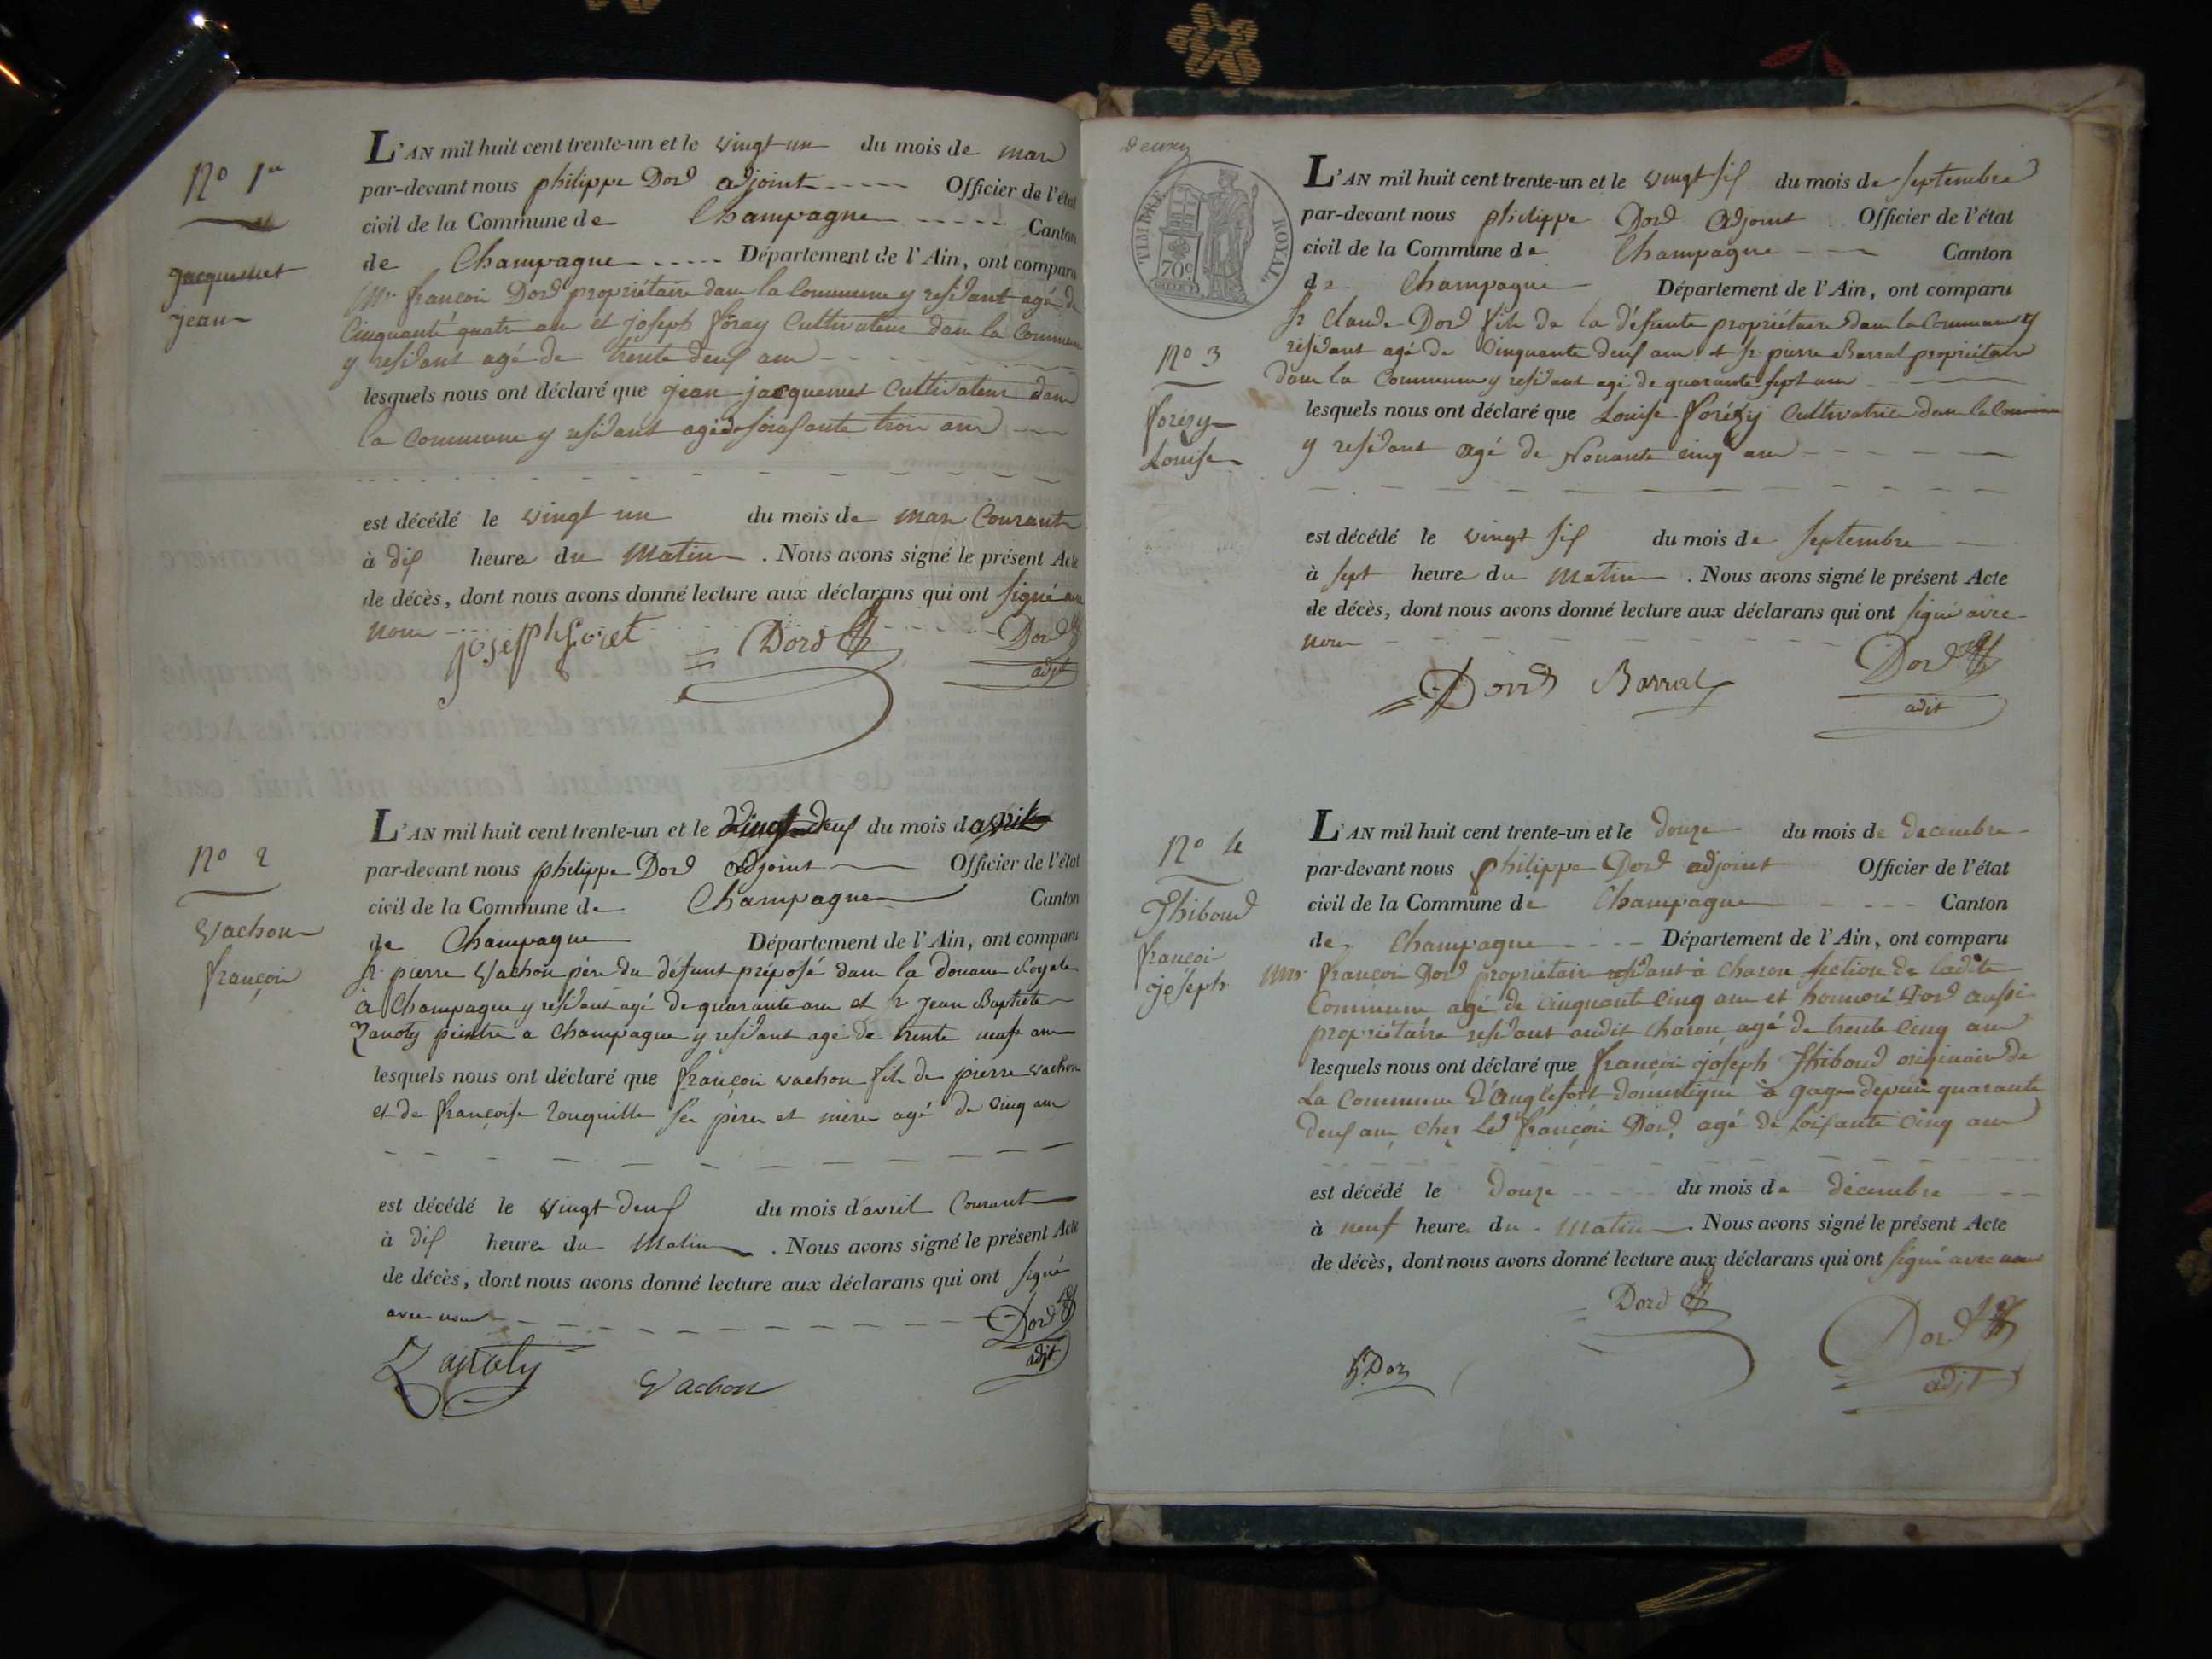 N° 1er
Jacquemet
Jean
L'AN mil huit cent trente-un et le vingt un du mois de mars
par-devant nous philippe Dord adjoint Officier de l'état
civil de la Commune de Champagne Canton
de Champagne Département de l'Ain, ont comparu
Mr. françois Dord propriétaire dans la Commune y residant agé de
Cinquante quatre ans et joseph foray Cultivateur dans la Commune
y residant agé de trente deux ans
lesquels nous ont déclaré que jean jacquemet Cultivateur dans
la Commune y residant agé de soixante trois ans
est décédé le vingt un du mois de mars Courant
à dix heure du Matin . Nous avons signé le présent Acte
de décès, dont nous avons donné lecture aux déclarans qui ont signé avec
nous
joseph foret Dord Dord
adjt
N° 2
Vachon
françois
L'AN mil huit cent trente-un et le vingt deux du mois d'avril
par-devant nous philippe Dord adjoint Officier de l'état
civil de la Commune de Champagne Canton
de Champagne Département de l'Ain, ont comparu
Sr. pierre Vachon père du défunt préposé dans la Douane Royale
à Champagne y residant agé de quarante ans et Sr Jean Baptiste
Zanoty peintre a Champagne y residant agé de trente neuf ans
lesquels nous ont déclaré que françois vachon fils de pierre vachon
et de françoise Rouquille ses pères et mères agé de cinq ans
est décédé le vingt deux du mois d'avril Courant
à dix heure du Matin . Nous avons signé le présent Acte
de décès, dont nous avons donné lecture aux déclarans qui ont signé
avec nous
Dord
adjt
Zanoty Vachon
deux
TIMBRE ROYAL
70c
N° 3
forézy
Louise
L'AN mil huit cent trente-un et le vingt six du mois de septembre
par-devant nous philippe Dord Adjoint Officier de l'état
civil de la Commune de Champagne Canton
de Champagne Département de l'Ain, ont comparu
Sr Claude Dord fils de la défunte propriétaire dans la Commune y
résidant agé de Cinquante deux ans et Sr. pierre Barral propriétaire
dans la Commune y residant agé de quarante sept ans
lesquels nous ont déclaré que Louise forézy Cultivatrice dans la Commune
y residant agé de Nonante cinq ans
est décédé le vingt six du mois de septembre
à sept heure du Matin . Nous avons signé le présent Acte
de décès, dont nous avons donné lecture aux déclarans qui ont signé avec
nous
Dord Barral Dord
adjt
N° 4
Thiboud
françoi
joseph
L'AN mil huit cent trente-un et le Douze du mois de decembre
par-devant nous philippe Dord adjoint Officier de l'état
civil de la Commune de Champagne Canton
de Champagne Département de l'Ain, ont comparu
Mr. françois Dord propriétaire residant à Charon section de ladite
Commune agé de Cinquante Cinq ans et honnoré Dord aussi
propriétaire residant audit Charon, agé de trente Cinq ans
lesquels nous ont déclaré que françois joseph Thiboud originaire de
La Commune d'Anglefort Domestique à gages depuis quarante
deux ans, chez led françois Dord, agé de soixante Cinq ans
est décédé le Douze du mois de décembre
à neuf heure du Matin . Nous avons signé le présent Acte
de décès, dont nous avons donné lecture aux déclarans qui ont signé avec nous
Dord Dord
h. Dord adjt